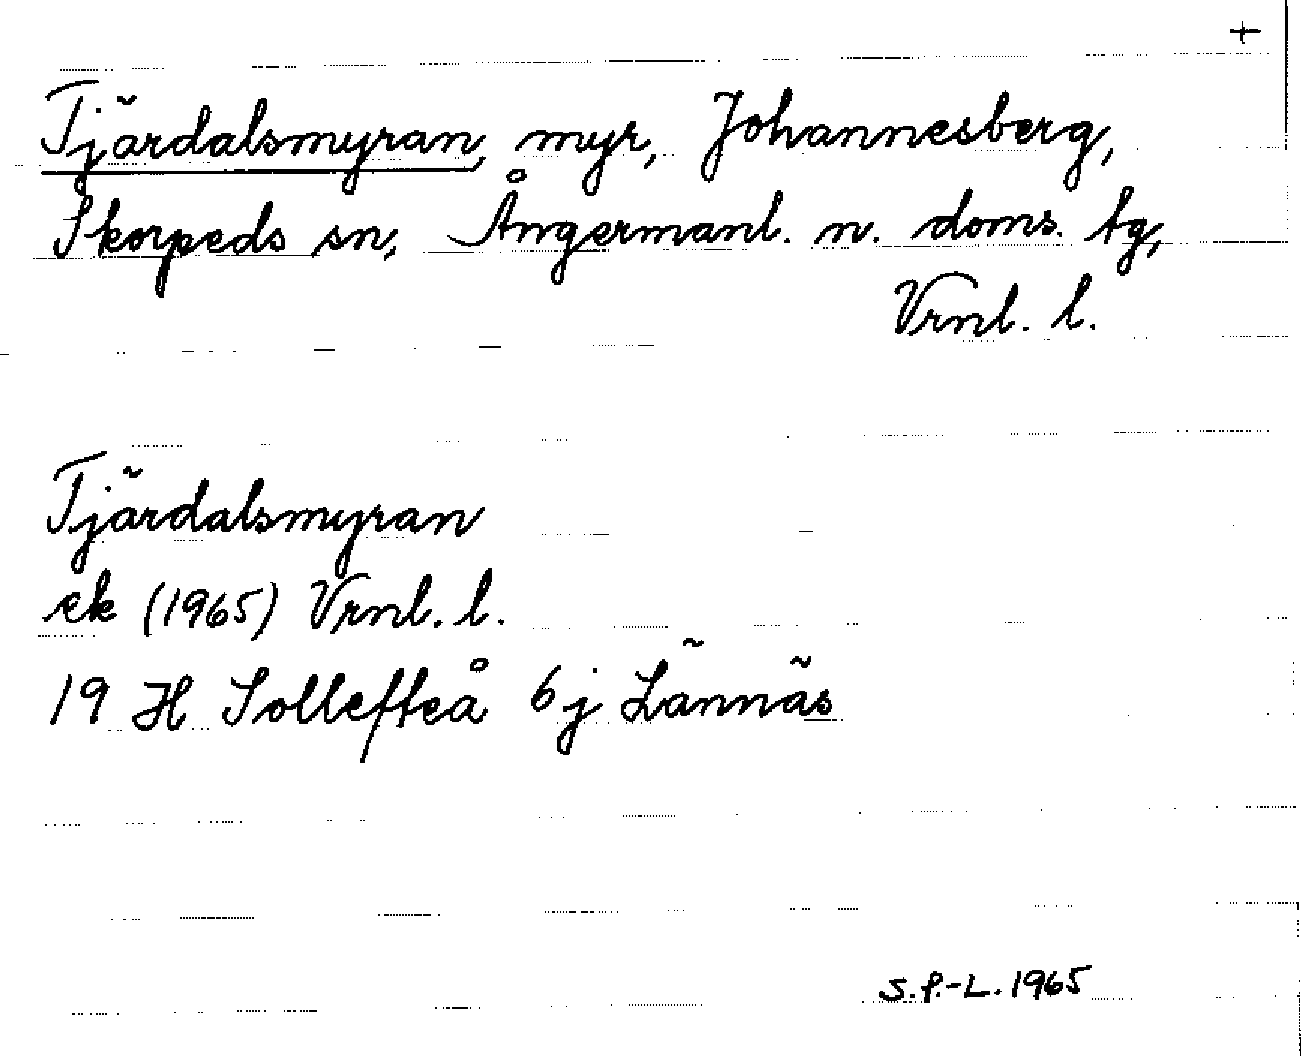 +
Tjärdalsmyran, myr, Johannesberg,
Skorpeds sn, Ångermanl. n. doms. tg,
Vrnl. l.
Tjärdalsmyran
ek (1965) Vrnl. l.
19 H Sollefteå 6j Lännäs
S.P.-L. 1965